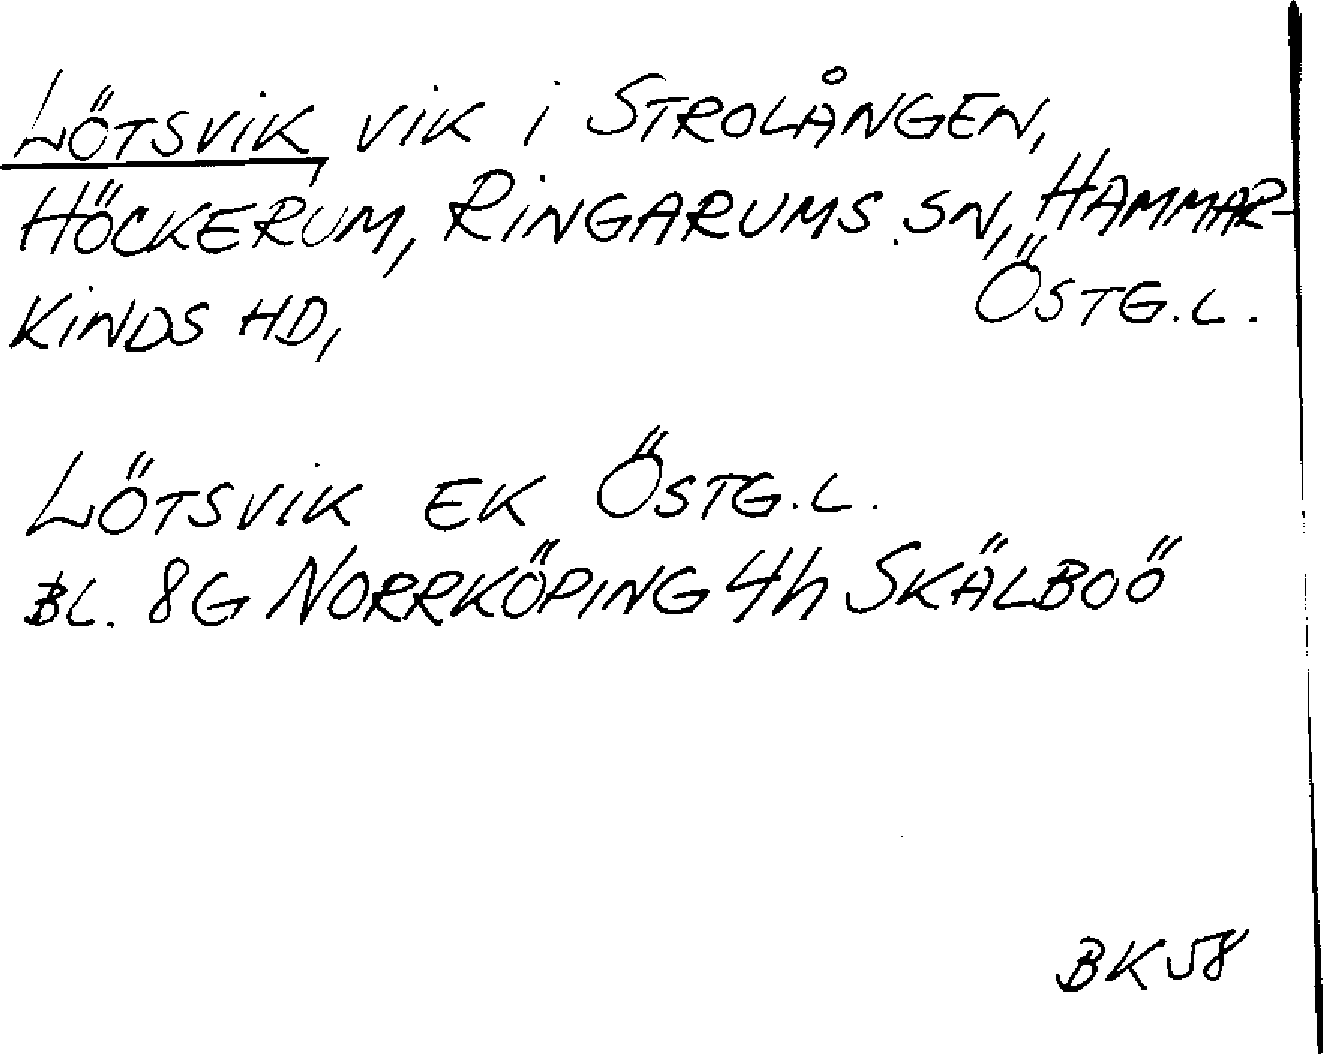 LÖTSVIK, VIK I STROLÅNGEN,
HÖCKERUM, RINGARUMS SN, HAMMAR-
KINDS HD, ÖSTG.L.
LÖTSVIK EK ÖSTG.L.
BL. 8G NORRKÖPING 4h SKÄLBOÖ
BK 58